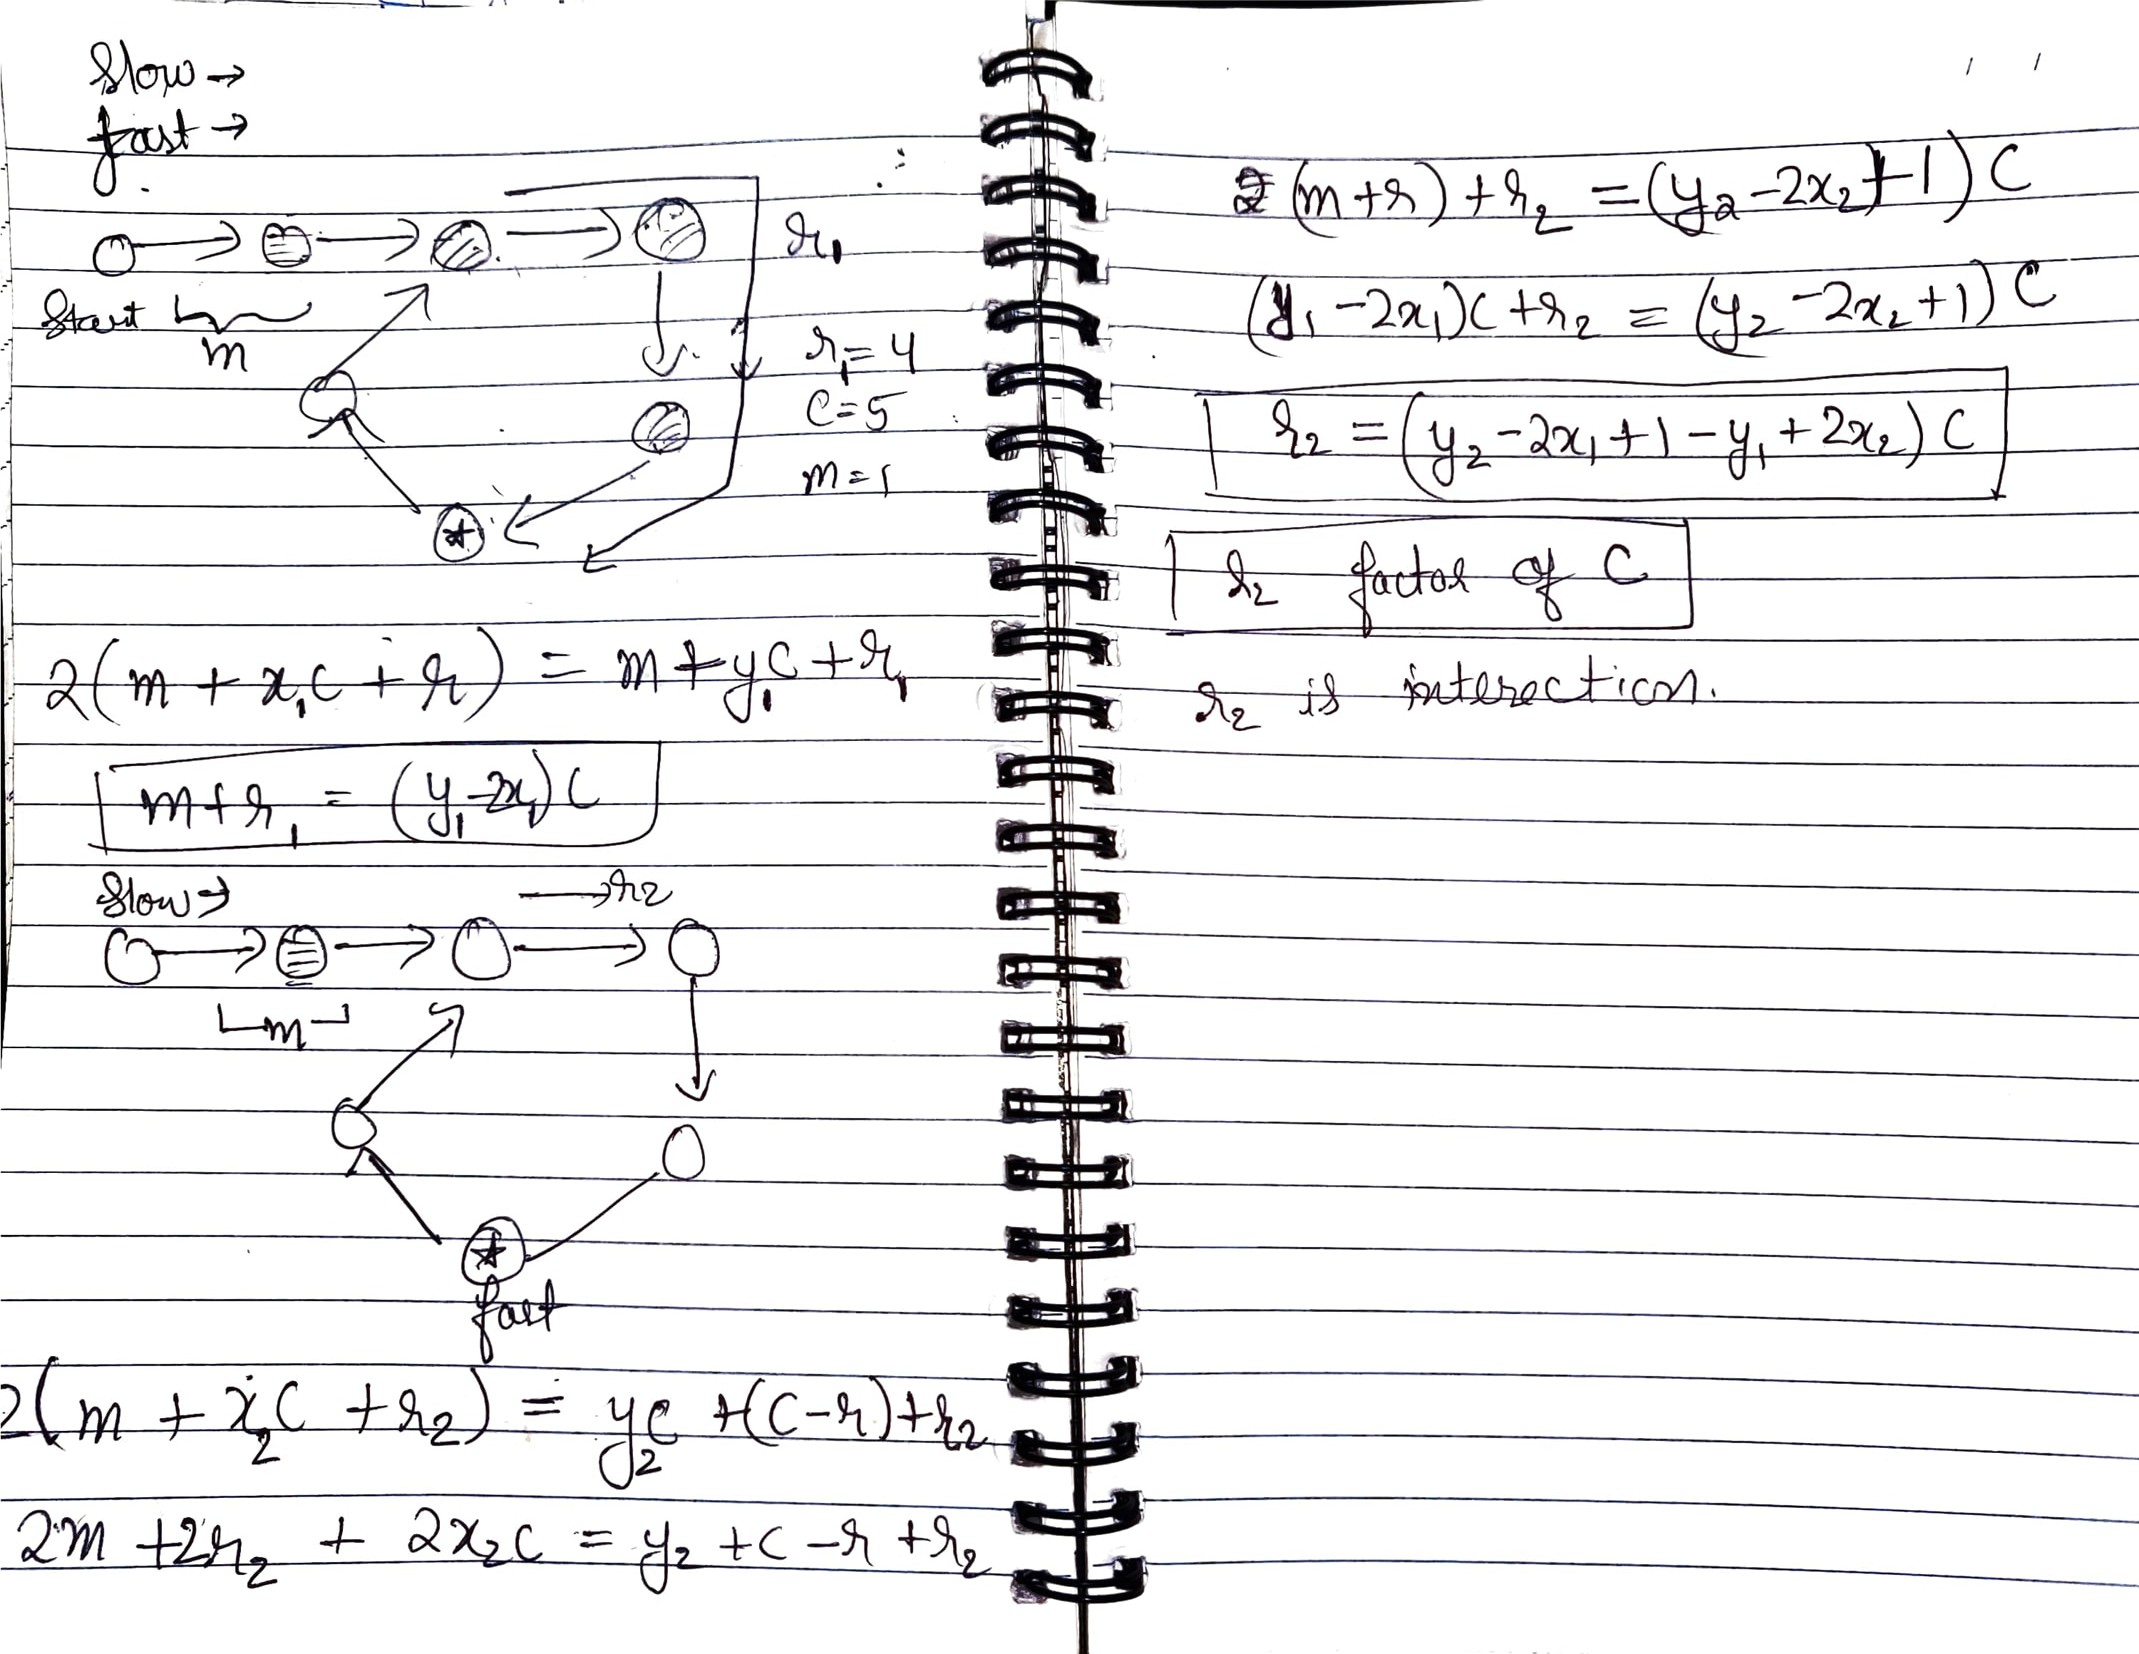 Slow →
fast →
r₁
Start
m
r₁ = 4
C = 5
m = 1
2(m + x₁C + r) = m + y₁C + r₁
m + r₁ = (y₁ - 2x₁)C
Slow →
→ r₂
m
fast
2(m + x₂C + r₂) = y₂C + (C - r) + r₂
2m + 2r₂ + 2x₂C = y₂ + C - r + r₂
(m + r) + r₂ = (y₂ - 2x₂ + 1) C
(y₁ - 2x₁)C + r₂ = (y₂ - 2x₂ + 1) C
r₂ = (y₂ - 2x₁ + 1 - y₁ + 2x₂) C
r₂ factor of C
r₂ is interection.